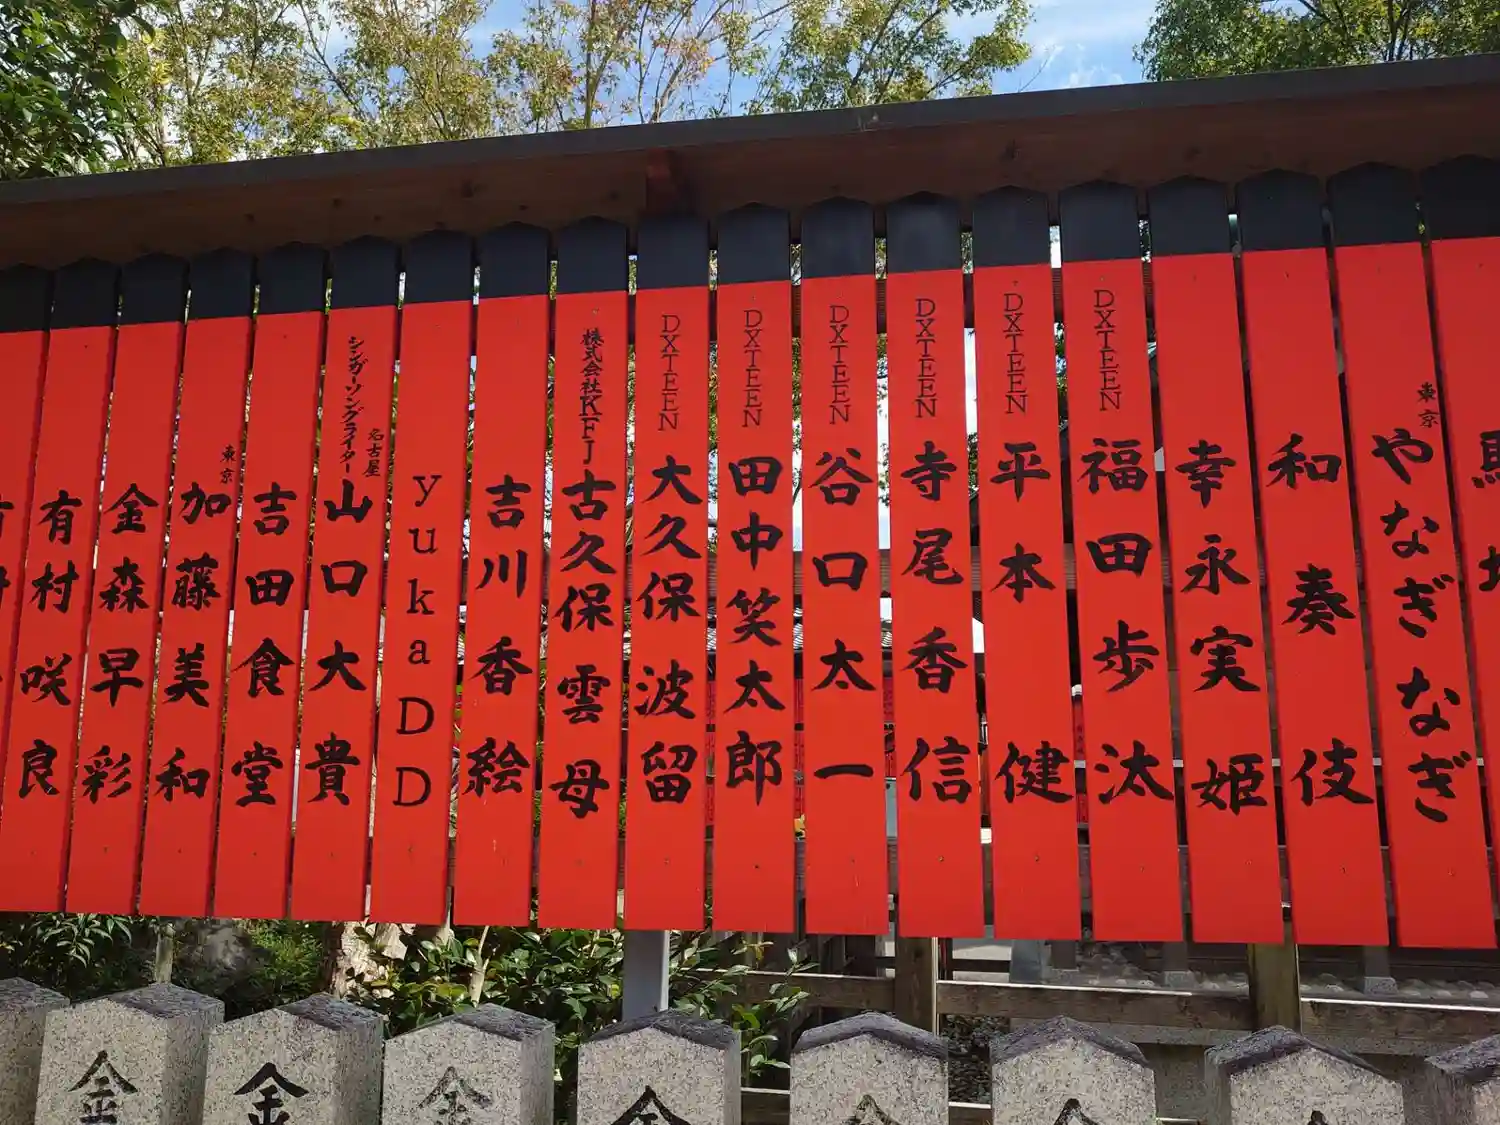 東京
やなぎなぎ
和奏伎
幸永実姫
DXTEEN
福田歩汰
DXTEEN
平本健
DXTEEN
寺尾香信
DXTEEN
谷口太一
DXTEEN
田中笑太郎
DXTEEN
大久保波留
株式会社KFJ
古久保雲母
吉川香絵
yukaDD
名古屋
シンガーソングライター
山口大貴
吉田食堂
東京
加藤美和
金森早彩
有村咲良
金
金
金